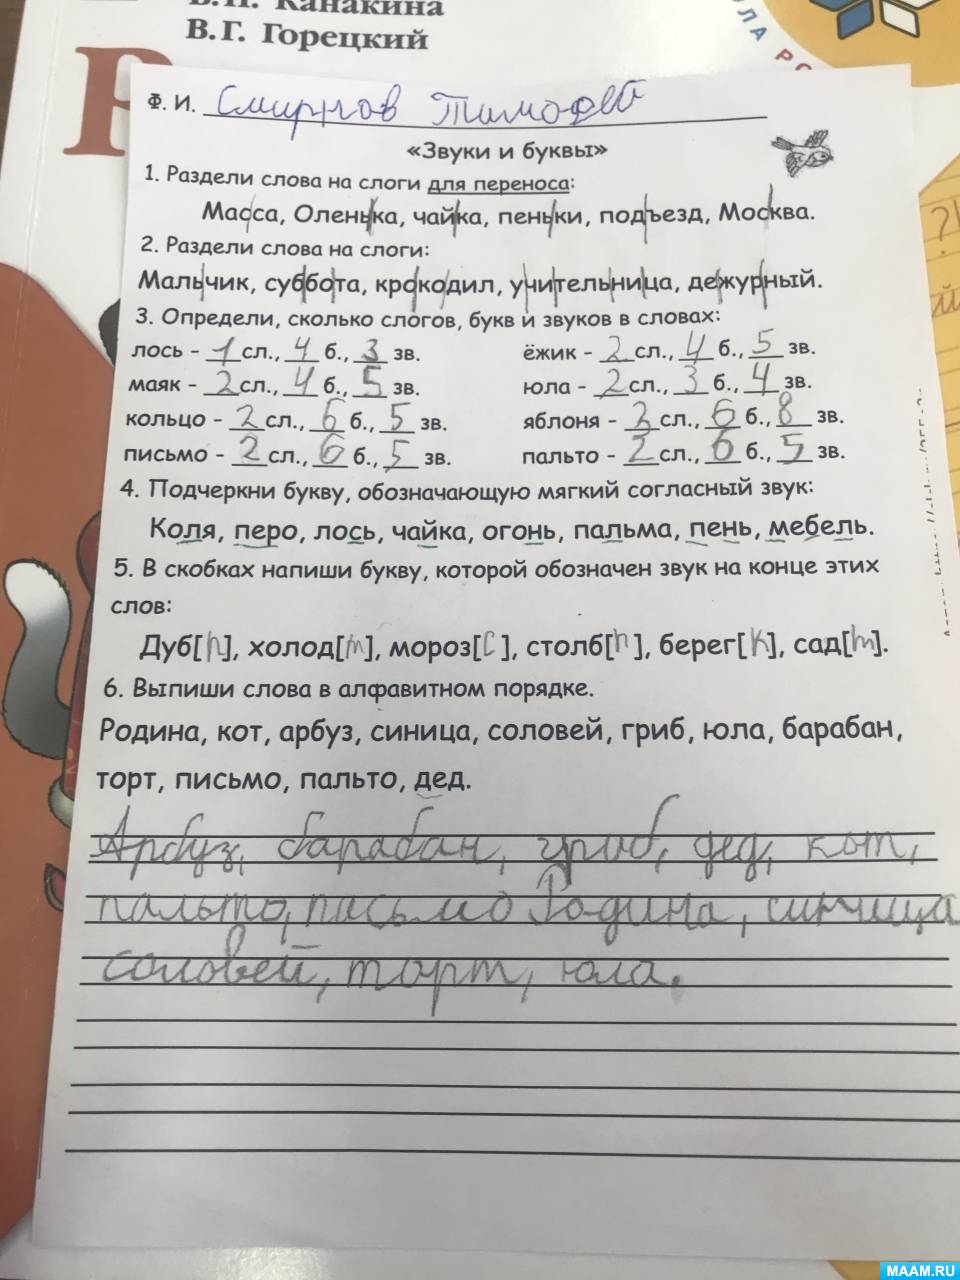 В.П. Канакина
В.Г. Горецкий
Ф. И. Смирнов Тимофей
«Звуки и буквы»
1. Раздели слова на слоги для переноса:
Мас|са, Олень|ка, чай|ка, пень|ки, подъ|езд, Мос|ква.
2. Раздели слова на слоги:
Маль|чик, суб|бо|та, кро|ко|дил, у|чи|тель|ни|ца, де|жур|ный.
3. Определи, сколько слогов, букв и звуков в словах:
лось - 1 сл., 4 б., 3 зв. ёжик - 2 сл., 4 б., 5 зв.
маяк - 2 сл., 4 б., 5 зв. юла - 2 сл., 3 б., 4 зв.
кольцо - 2 сл., 6 б., 5 зв. яблоня - 3 сл., 6 б., 8 зв.
письмо - 2 сл., 6 б., 5 зв. пальто - 2 сл., 6 б., 5 зв.
4. Подчеркни букву, обозначающую мягкий согласный звук:
Коля, перо, лось, чайка, огонь, пальма, пень, мебель.
5. В скобках напиши букву, которой обозначен звук на конце этих
слов:
Дуб[п], холод[т], мороз[с], столб[п], берег[к], сад[т].
6. Выпиши слова в алфавитном порядке.
Родина, кот, арбуз, синица, соловей, гриб, юла, барабан,
торт, письмо, пальто, дед.
Арбуз, барабан, гриб, дед, кот,
пальто, письмо Родина, синица
соловей, торт, юла.
MAAM.RU